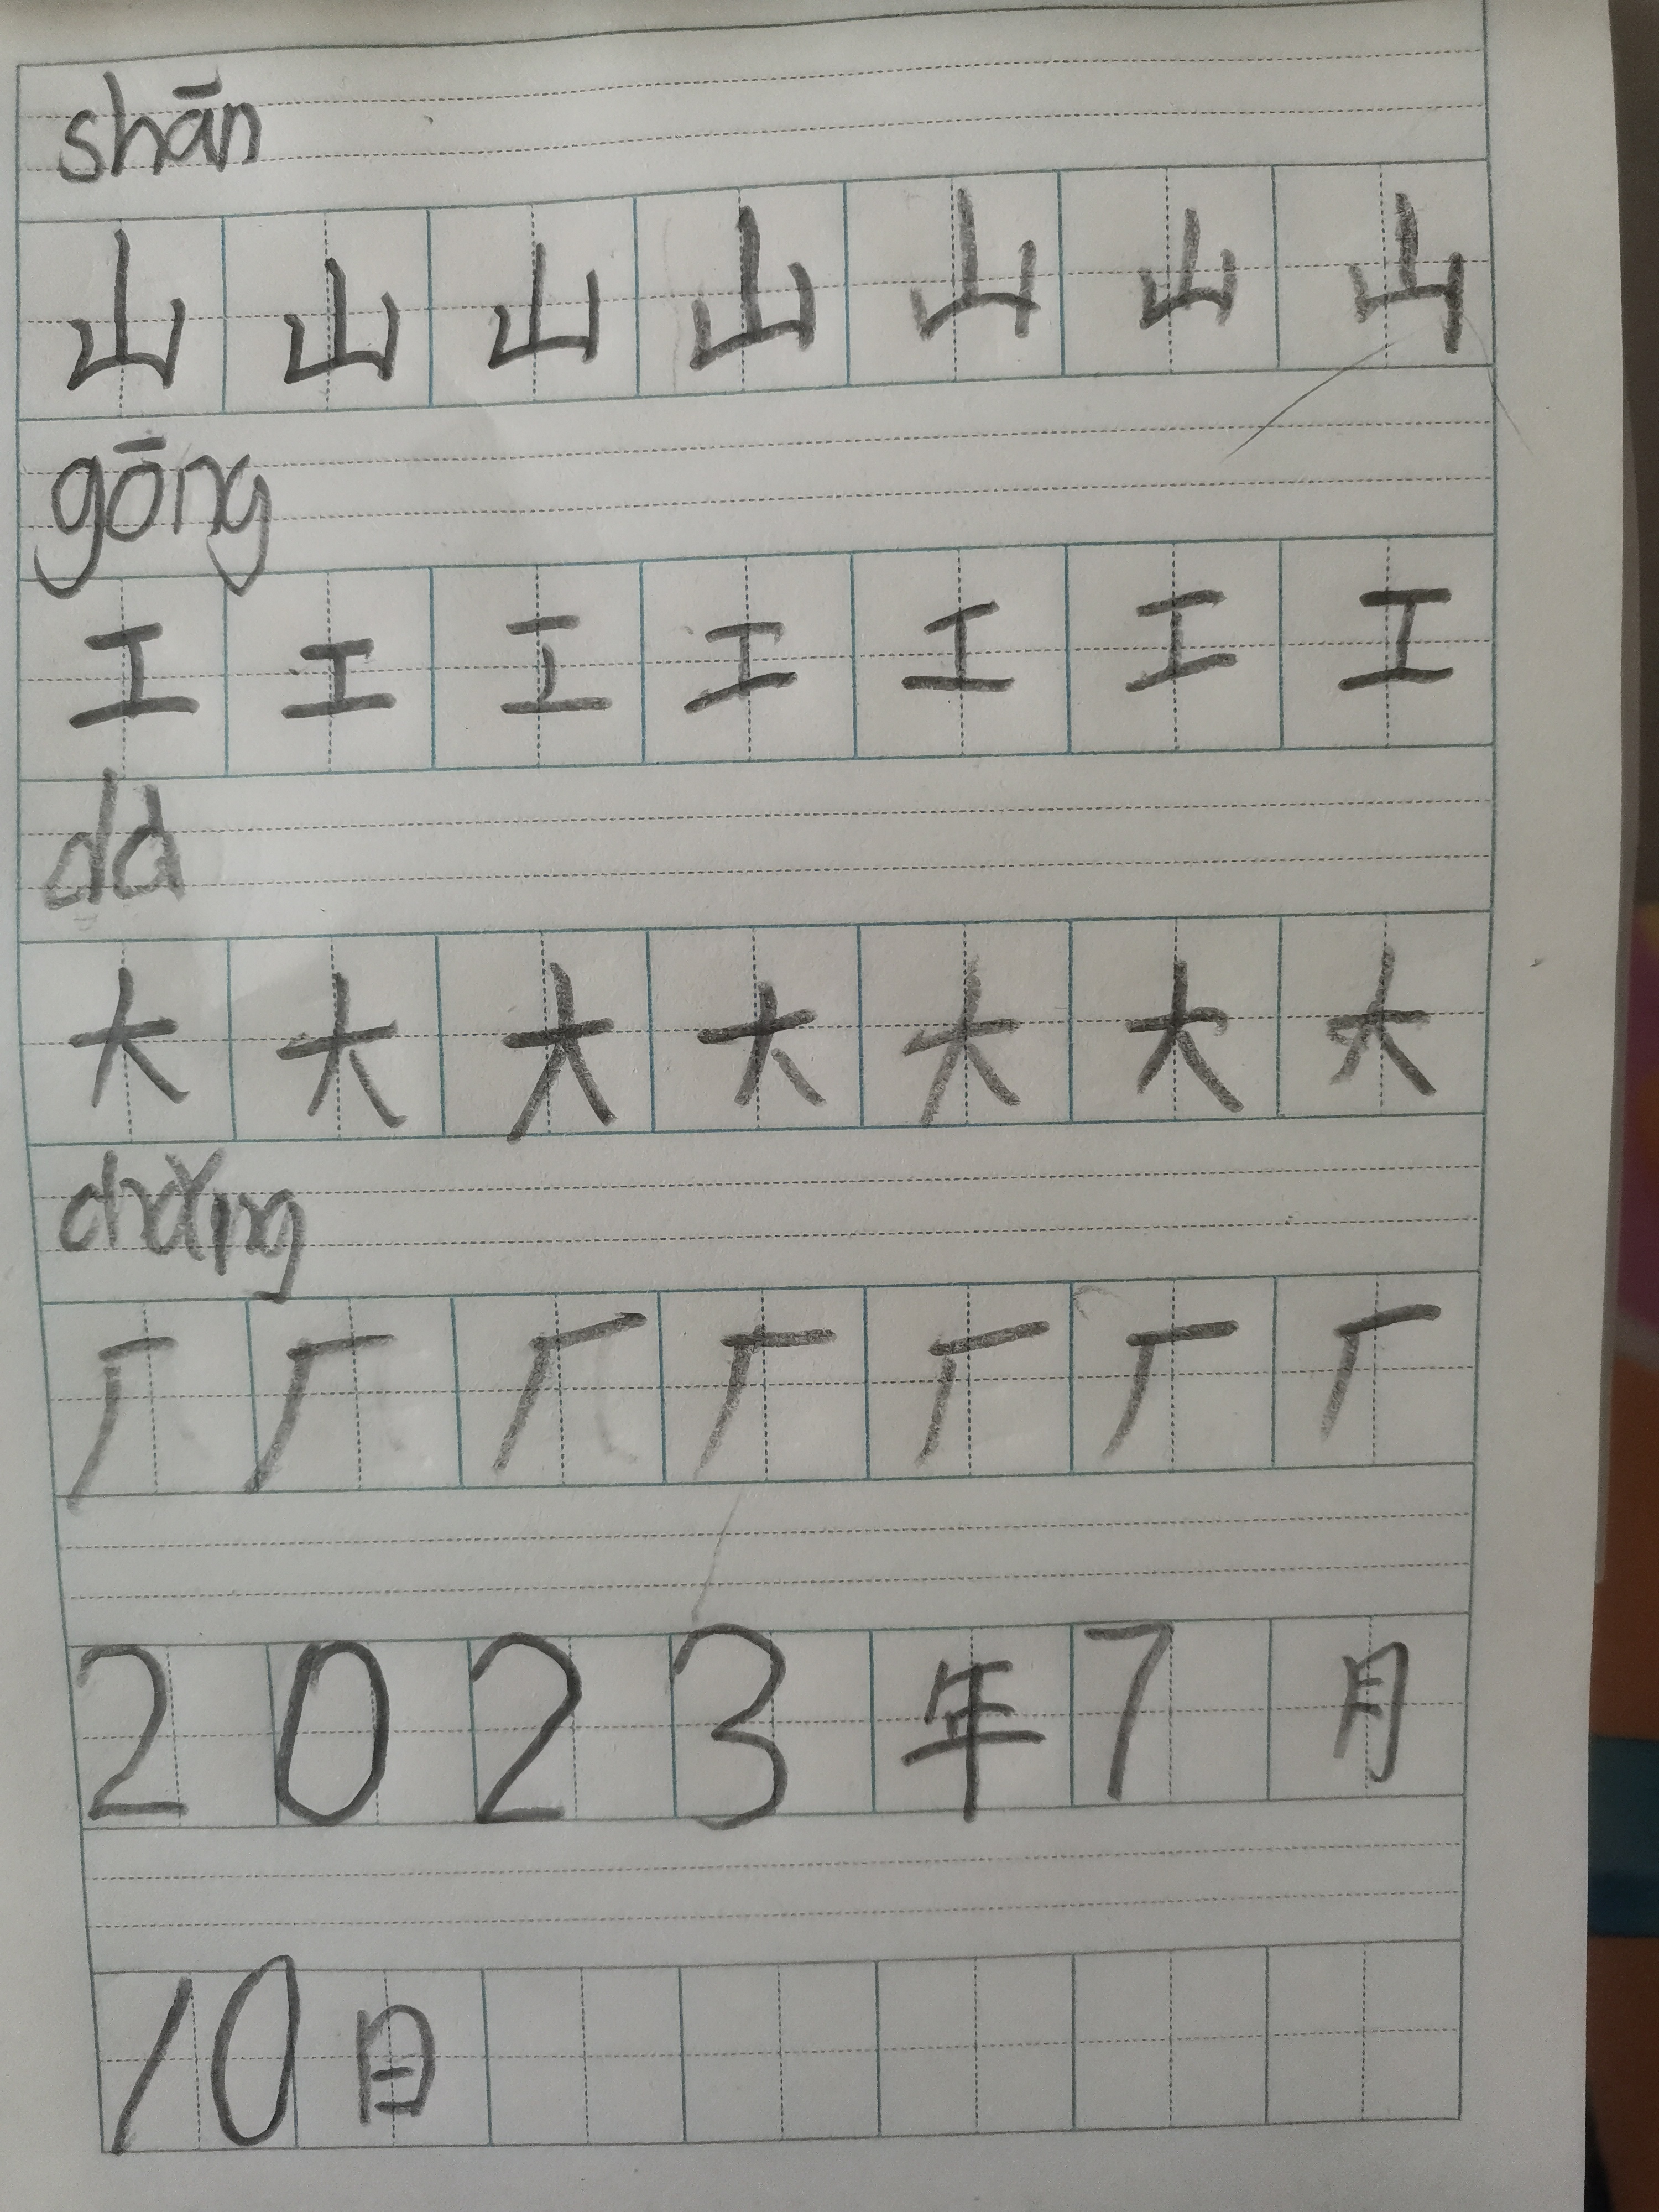 shān
山 山 山 山 山 山 山
gōng
工 工 工 工 工 工 工
da
大 大 大 大 大 大 大
chǎng
厂 厂 厂 厂 厂 厂 厂
2023年7月
10日